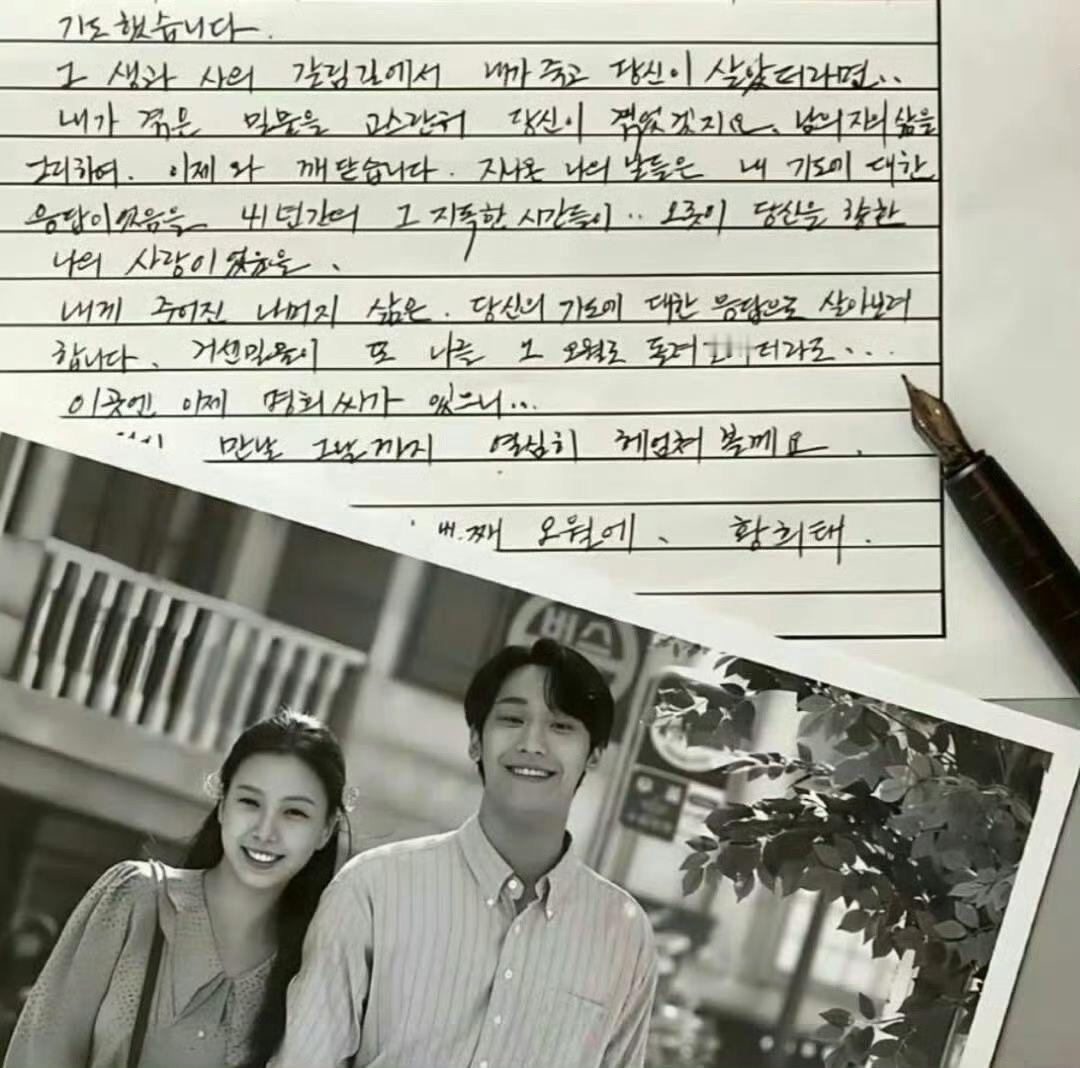 기도했습니다.
그 생과 사의 갈림길에서 내가 죽고 당신이 살았더라면..
내가 겪은 밀물을 고스란히 당신이 겪었겠지요. 남은 자의 삶을
그리하여. 이제와 깨닫습니다. 지나온 나의 날들은 내 기도에 대한
응답이었음을. 41년간의 그 지독한 시간들이.. 오롯이 당신을 향한
나의 사랑이었음을.
내게 주어진 나머지 삶은. 당신의 기도에 대한 응답으로 살아보려
합니다. 거센 밀물이 또 나를 그 오월로 돌려 더라도....
이곳엔 이제 명희씨가 있으니...
만날 그날까지 열심히 헤엄쳐볼께요.
번째 오월에. 황희태.
버스